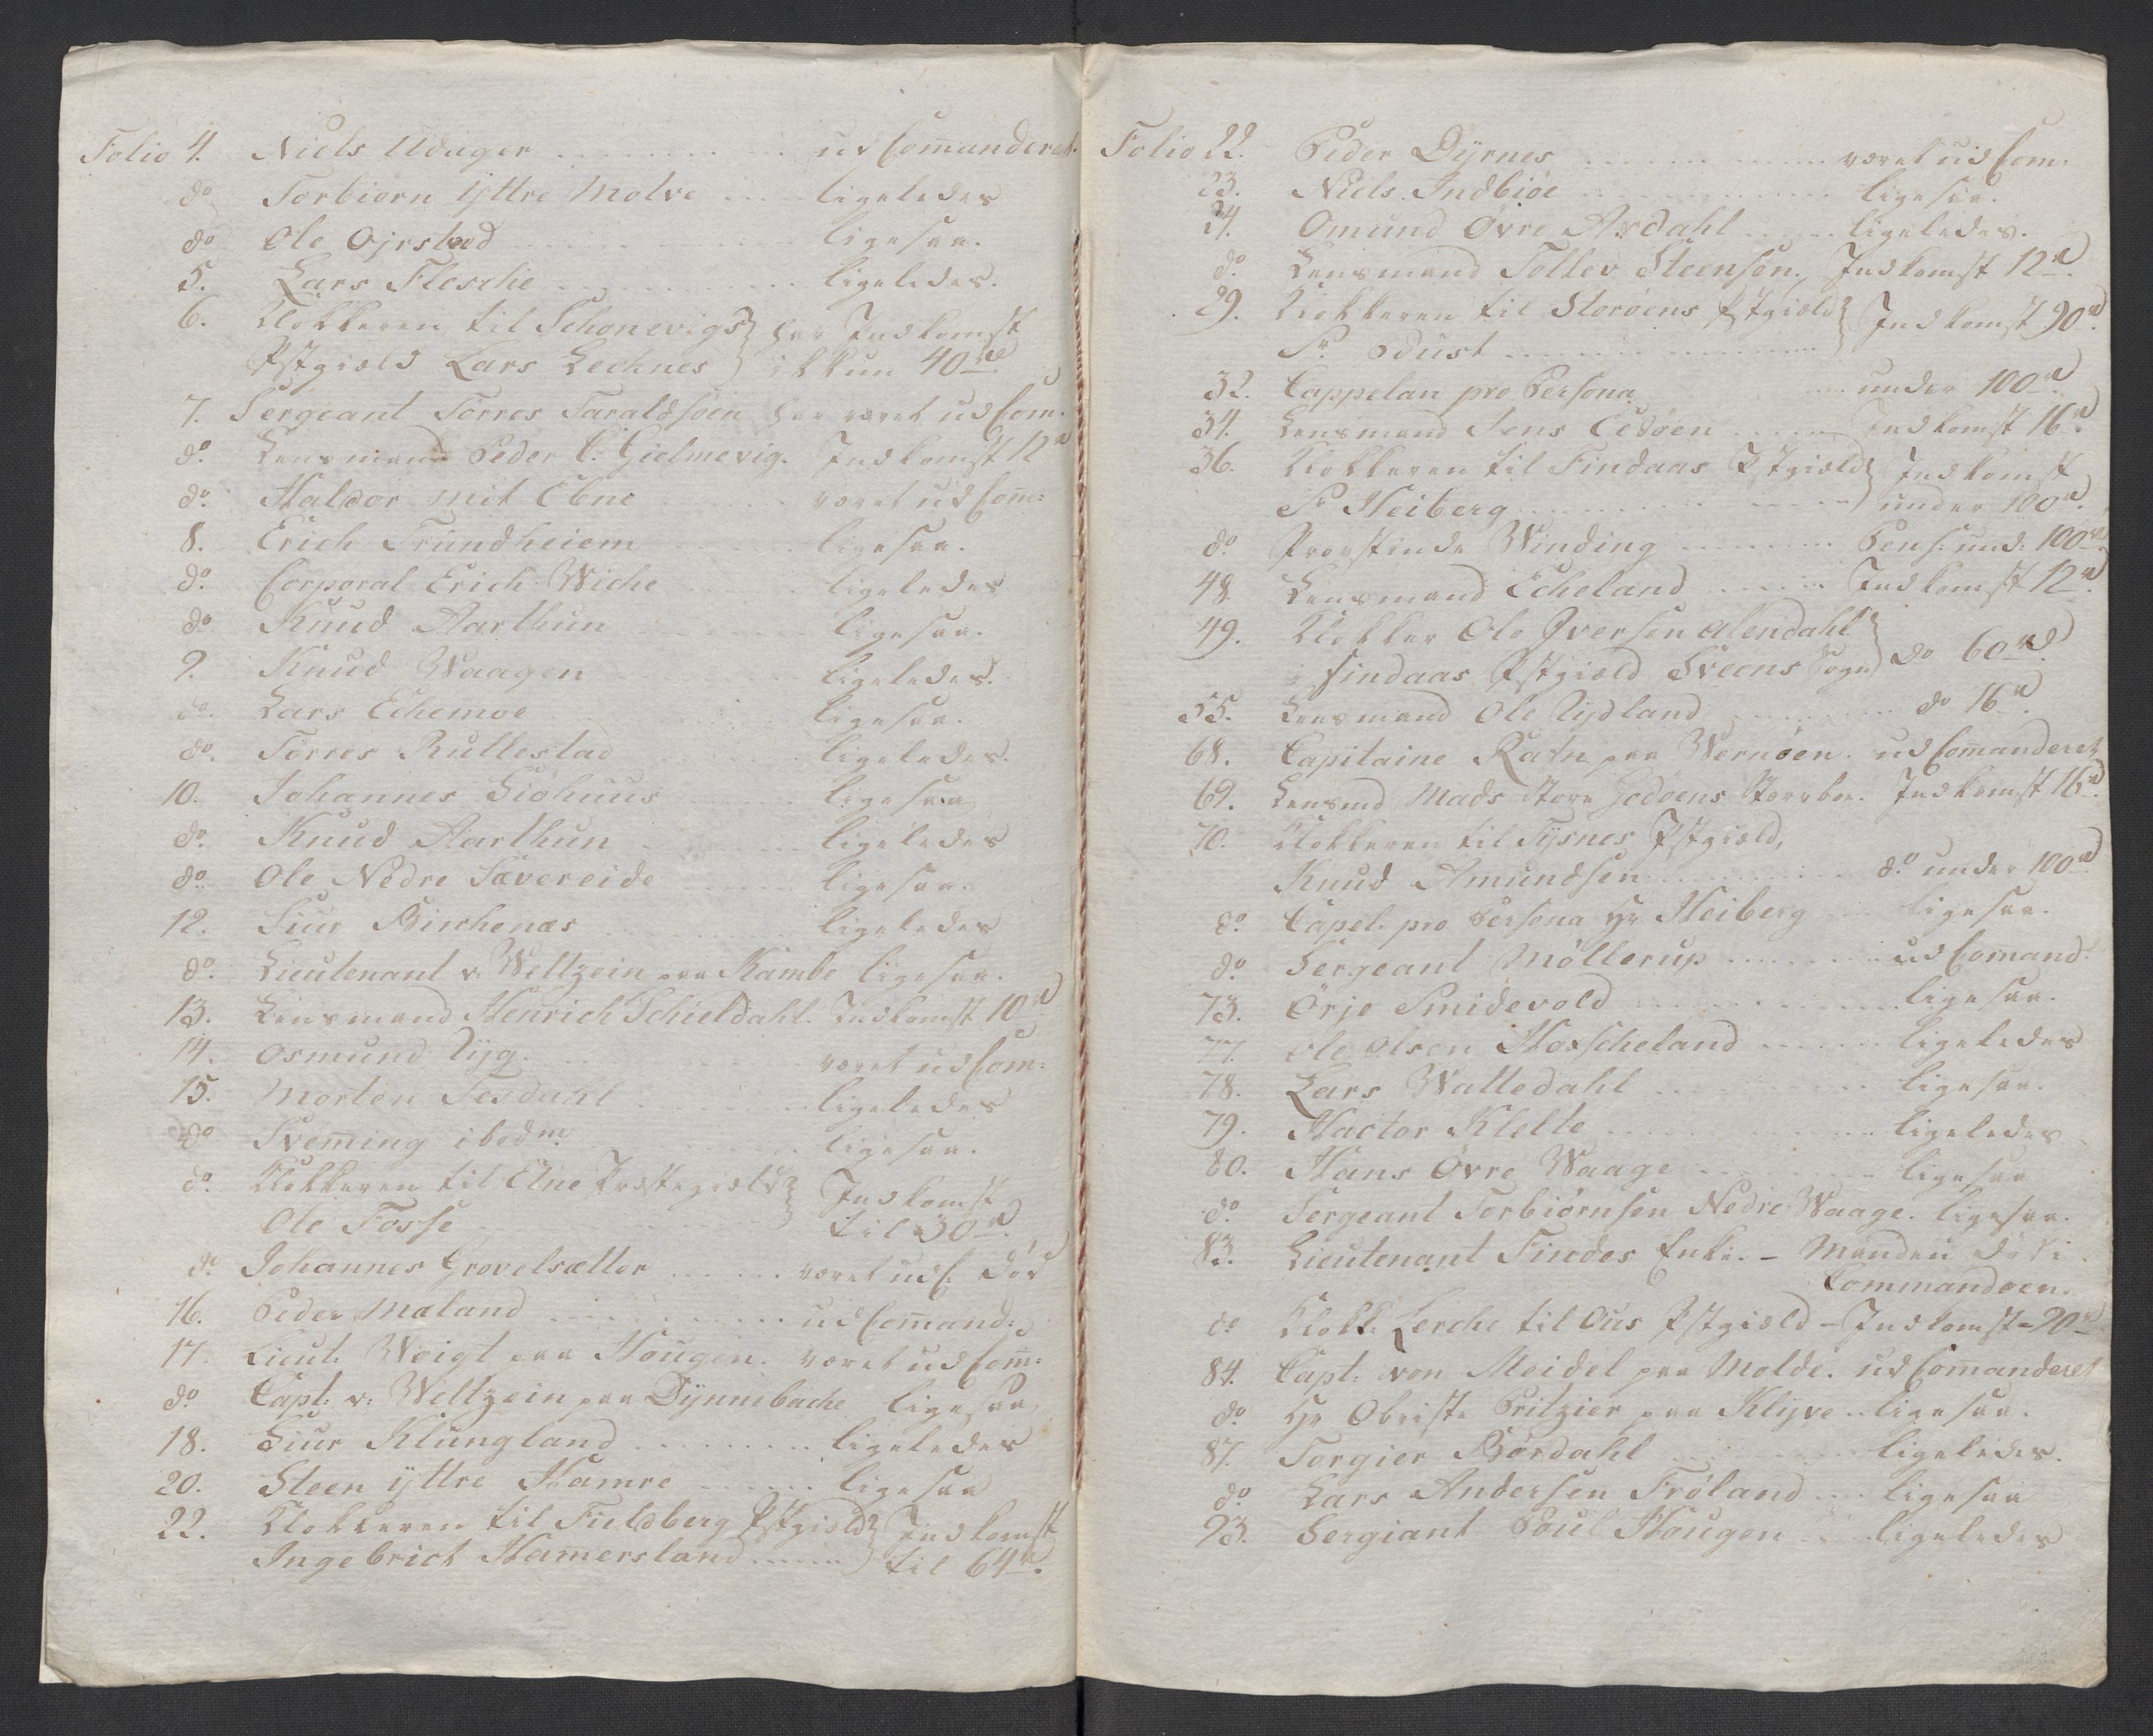 Folio 4. Niels Udager ud Com̄anderet.
do Torbiorn Ÿttre Molve ligeledes
do Ole Ojrstad ligesaa.
5. Lars Flesche ligeledes.
6. Klokkeren til Schonevigs har Indkomst
Pstgield Lars Lechnes ikkun 40 rd.
7. Sergeant Torres Taraldsøen har været ud Com.
do. Lensmand Peder C. Gielmevig. Indkomst 12 rd
do. Haldor mit Ebne været ud Com̄:
8. Erich Trundheiem ligesaa.
do. Corporal Erich Wiche ligeledes
do Knud Aarthun ligesaa.
9. Knud Waagen ligeledes.
do. Lars Echemoe ligesaa.
do. Torres Rullestad ligeledes.
10. Johannes Siøhuus ligesaa
do. Knud Aarthun ligeledes
do. Ole Nedre Sævereide ligesaa.
12. Siur Birchenæs ligeledes
do. Lieutenant v: Weltzein paa Kambe ligesaa.
13. Lensmand Henrich Schieldahl. Indkomst 10 rd
14. Osmund Ryg. været ud Com:
15. Morten Tesdahl ligeledes
do Svem̄ing ibedm. ligesaa.
do. Klokkeren til Etne Præstegield Indkomst
Ole Fosse til 30 rd.
do. Johannes Grovelsætter været ud C: død
16. Peder Mæland ud Com̄and:
17. Lieut: Woigt paa Hougen. været ud Com̄:
do. Capt: v: Weltzein paa Dynnebache ligesaa
18. Siur Klungland ligeledes
20. Steen ÿttre Hamre ligesaa
22. Klokkeren til Fieldberg Pstgield Indkomst
Ingebrict Hamersland til 64 rd.
Folio 22. Peder Dÿrnes været ud Com:
23. Niels Indbiøe ligesaa.
24. Omund Øvre Axdahl ligeledes.
do. Lensmand Tollev Steensen. Indkomst 12 rd.
29. Klokkeren til Storøens Pstgield Indkomst 90 rd.
Sr. Odust
32. Cappelan pro Persona under 100 rd.
34. Lensmand Jens Eedøen Indkomst 16 rd.
36. Klokkeren til Findaas Pstgield Indkomst
Sr Heiberg under 100 rd.
do. Provstinde Winding Pens: und: 100 rd.
48. Lensmand Echeland Indkomst 12 rd.
49. Klokker Ole Iversen Alendahl
i Findaas Pstgield Sveens Sogn do 60 rd.
55. Lensmand Ole Rydland do 16 rd.
68. Capitaine Rafn paa Wernøen. ud Com̄anderet
69. Lensmd Mads Store Godøens Storeboe. Indkomst 16 rd.
70. Klokkeren til Tysnes Pstgield,
Knud Amundsen do. under 100 rd
do. Capel. pro Persona Hr Heiberg ligesaa.
do. Sergeant Møllerup ud Com̄and:
73. Ørje Smidevold ligesaa.
77. Ole Olsen Hoxscheland ligeledes
78. Lars Wattedahl ligesaa.
79. Hactor Klette ligeledes
80. Hans Øvre Waage ligesaa
do. Sergeant Torbiørnsen Nedre Waage. ligesaa.
83. Lieutenant Findes Enke. – Manden død i
Commandoen.
do Klokk: Lerche til Ous Pstgield – Indkomst – 90 rd.
84. Capt: von Meidel paa Molde. ud Com̄anderet
do. Hr Obriste Pritzier paa Klyve ligesaa.
87. Torgier Børdahl ligeledes.
do. Lars Andersen Frøland ligesaa
93. Sergiant Poul Hougen ligeledes